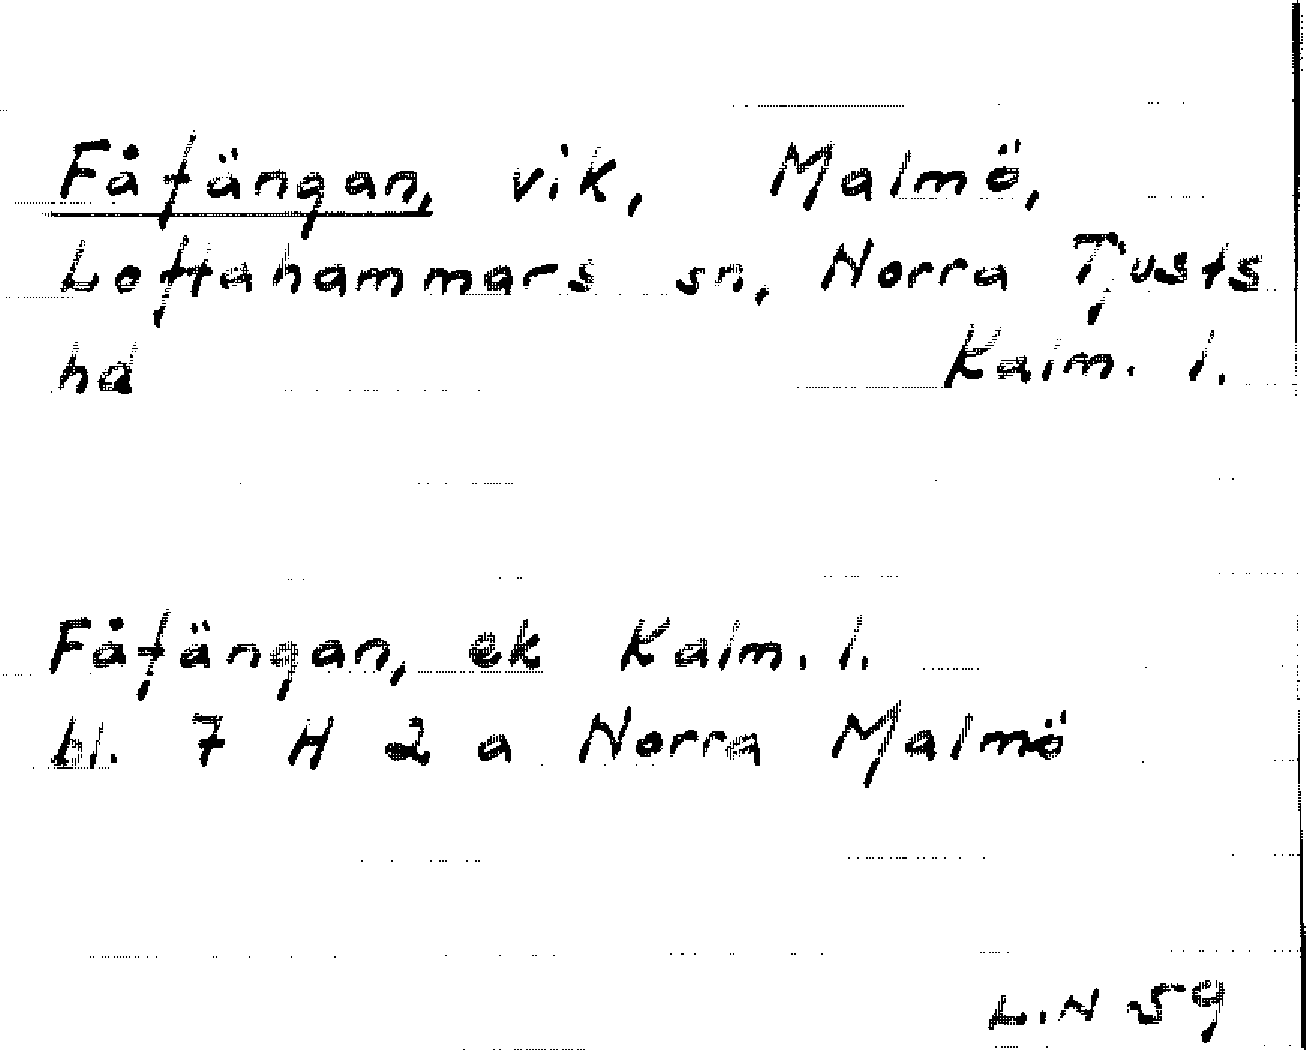 Fåfängan, vik, Malmö,
Loftahammars sn, Norra Tjusts
hd Kalm. l.
Fåfängan, ek Kalm. l.
bl. 7 H 2 a Norra Malmö
L.N 59